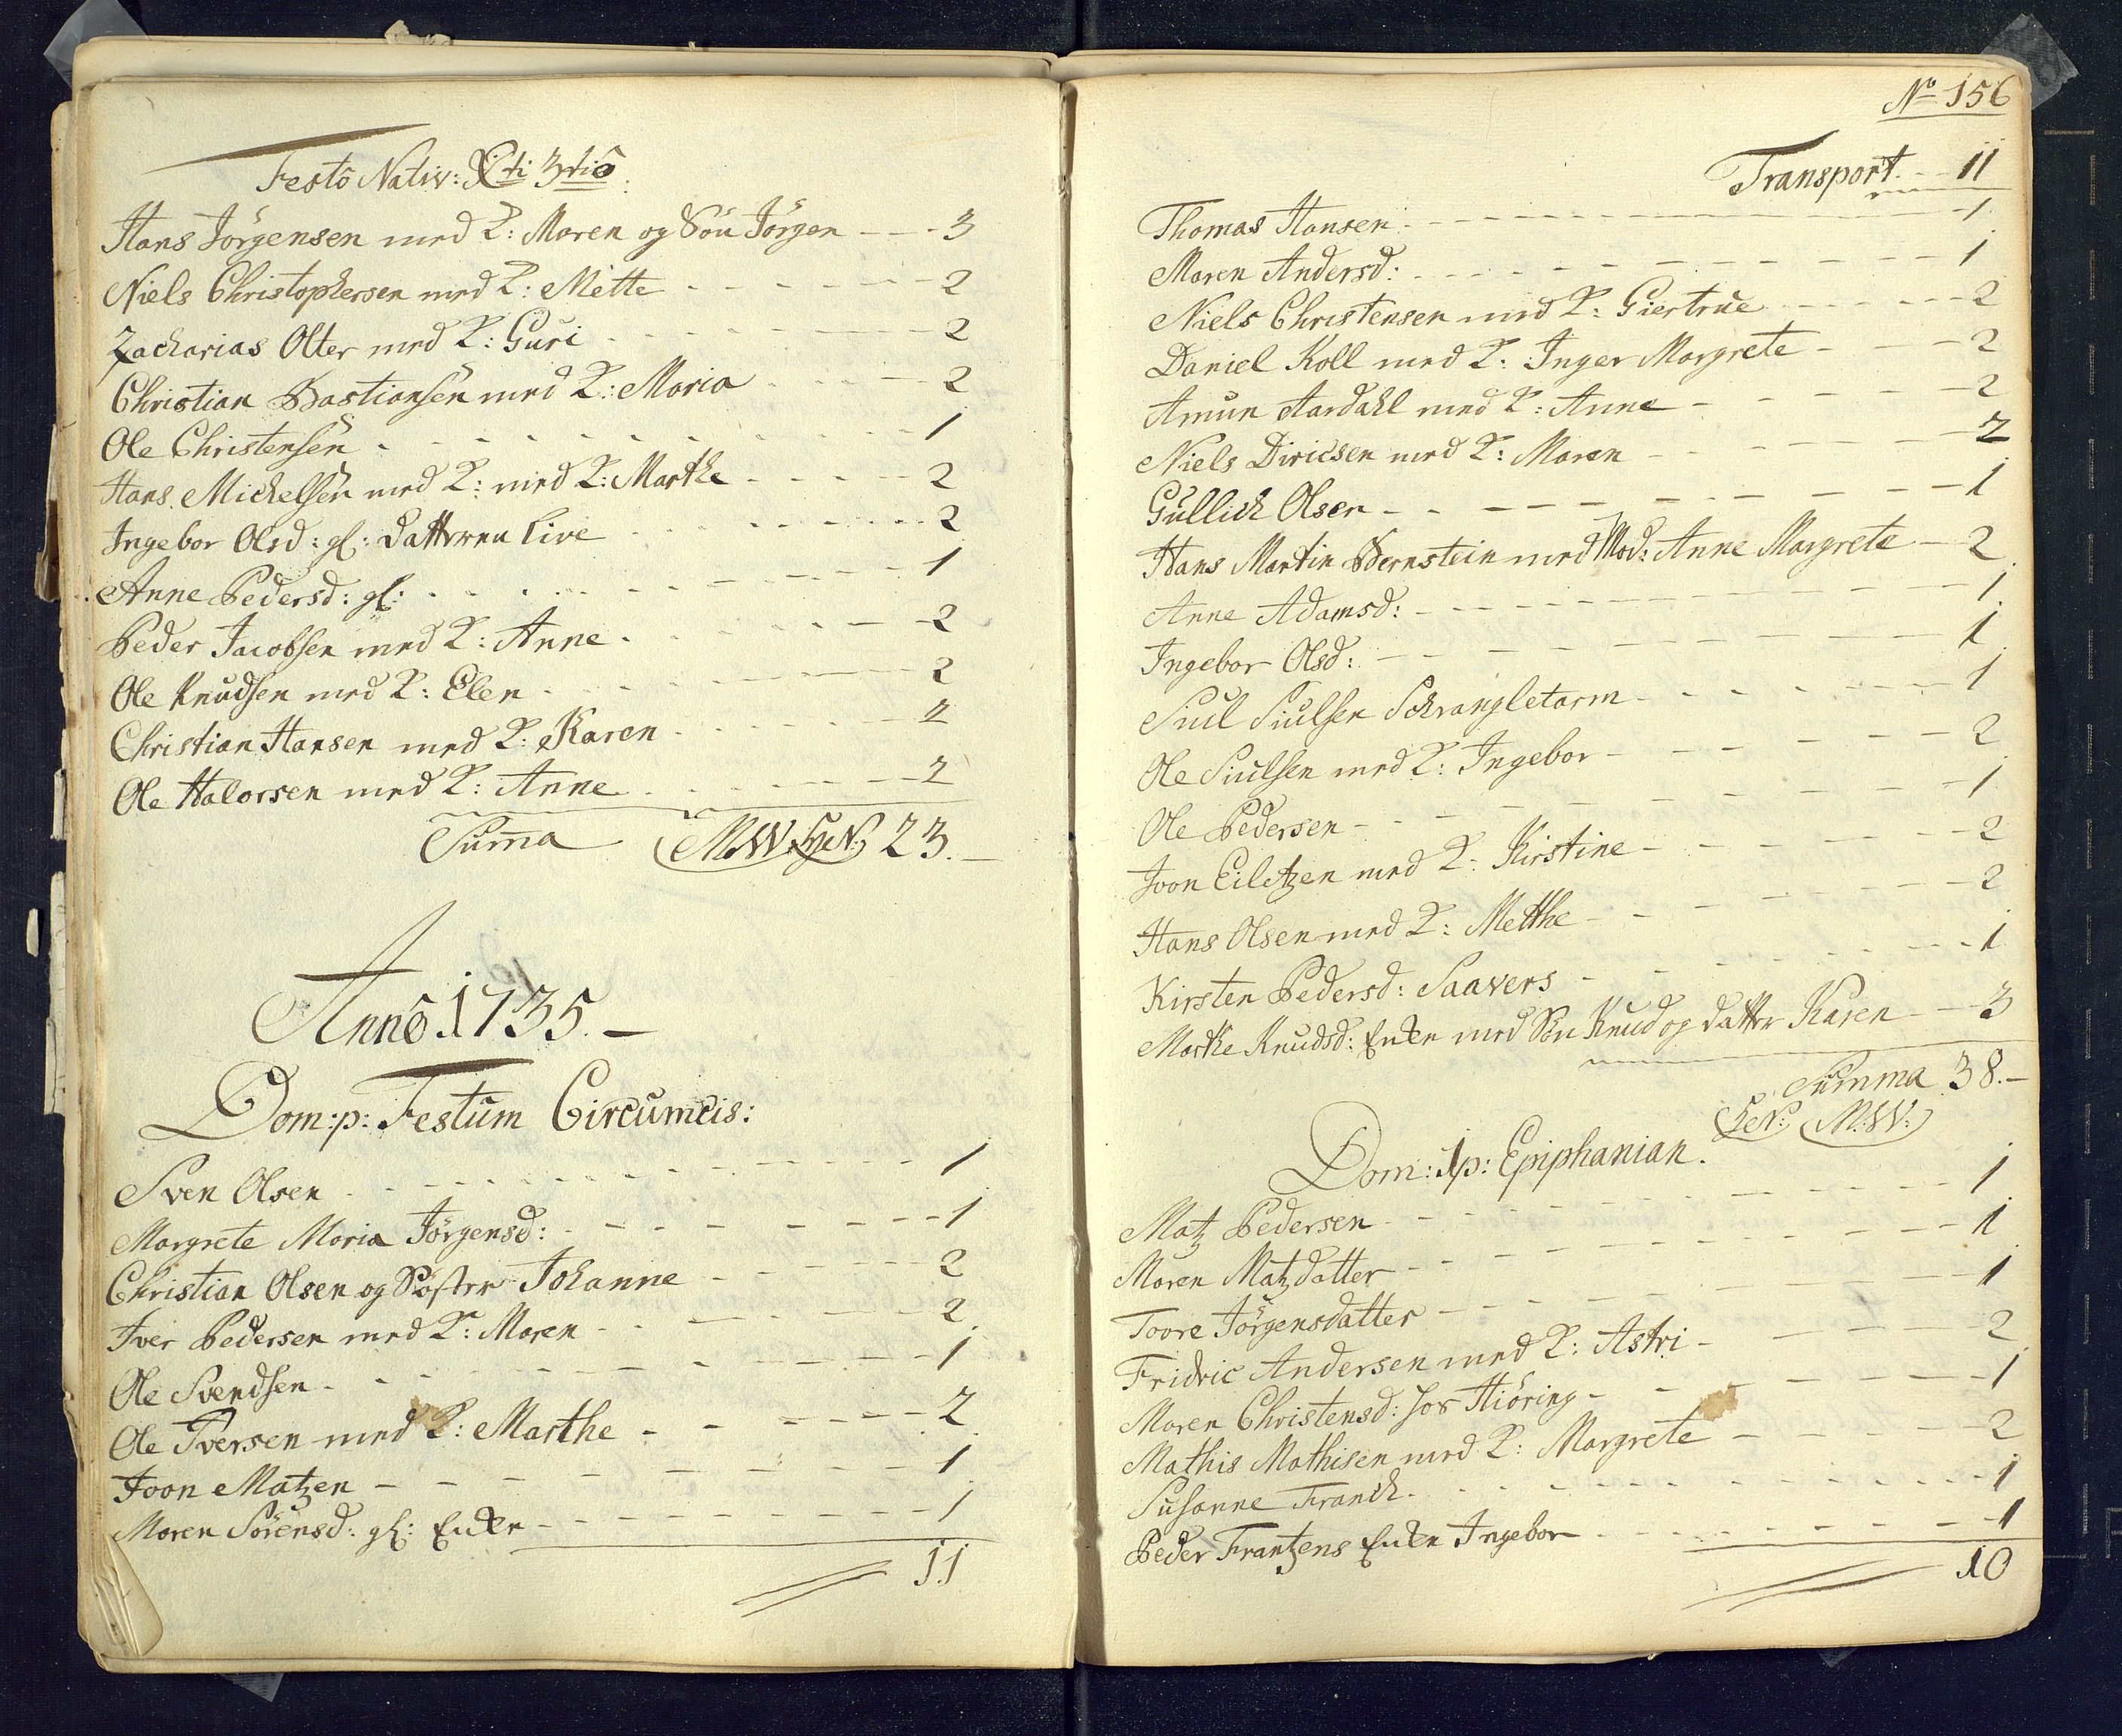 Festo Nativ: Xti 3tiô
Hans Jörgensen med K: Maren og Sön Jörgen - - - 3
Niels Christophersen med K: Mette - - - 2
Zacharias Olter med K: Guri - - - 2
Christian Bastiansen med K: Maria - - - 2
Ole Christensen - - - 1
Hans Michelsen med K: med K: Marthe - - - 2
Ingebor Olsd: gl: Datteren Live - - - 2
Anne Pedersd: gl: - - - 1
Peder Jacobsen med K: Anne - - - 2
Ole Knudsen med K: Elen - - - 2
Christian Hansen med K: Karen - - - 2
Ole Halorsen med K: Anne - - - 2
Sum̄a M.W. 23.
Annô 1735.
Dom: p: Festum Circumcis:
Sven Olsen - - - 1
Margrete Maria Jörgensd: - - - 1
Christian Olsen og Söster Johanne - - - 2
Iver Pedersen med K: Maren - - - 2
Ole Svendsen - - - 1
Ole Iversen med K: Marthe - - - 2
Joon Matzen - - - 1
Maren Sörensd: gl: Enken - - - 1
11
No 156
Transport - - 11
Thomas Hansen - - - 1
Maren Andersd: - - - 1
Niels Christensen med K: Giertrue - - - 2
Daniel Koll med K: Inger Margrete - - - 2
Amun Aardahl med K: Anne - - - 2
Niels Diricsen med K: Maren - - - 2
Gullich Olsen - - - 1
Hans Martin Bernstein med Mod: Anne Margrete - 2
Anne Adamsd: - - - 1
Ingebor Olsd: - - - 1
Siul Siulsen Schrangletarm - - - 1
Ole Siulsen med K: Ingebor - - - 2
Ole Pedersen - - - 1
Joon Eiletzen med K: Kirstine - - - 2
Hans Olsen med K: Metthe - - - 2
Kirsten Pedersd: Saavers - - - 1
Marthe Knudsd: Enken med Sön Knud og datter Karen - - 3
Summa 38.
M.W:
Dom: 1 p: Epiphanian.
Matz Pedersen - - - 1
Maren Matzdatter - - - 1
Toore Jörgensdatter - - - 1
Fridric Andersen med K: Astri - - - 2
Maren Christensd: hos Hiöring - - - 1
Mathis Mathisen med K: Margrete - - - 2
Susanne Franch - - - 1
Peder Frantzens Enke Ingebor - - - 1
10